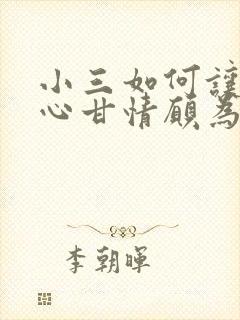 小三如何讓
心甘情願為
李朝暉